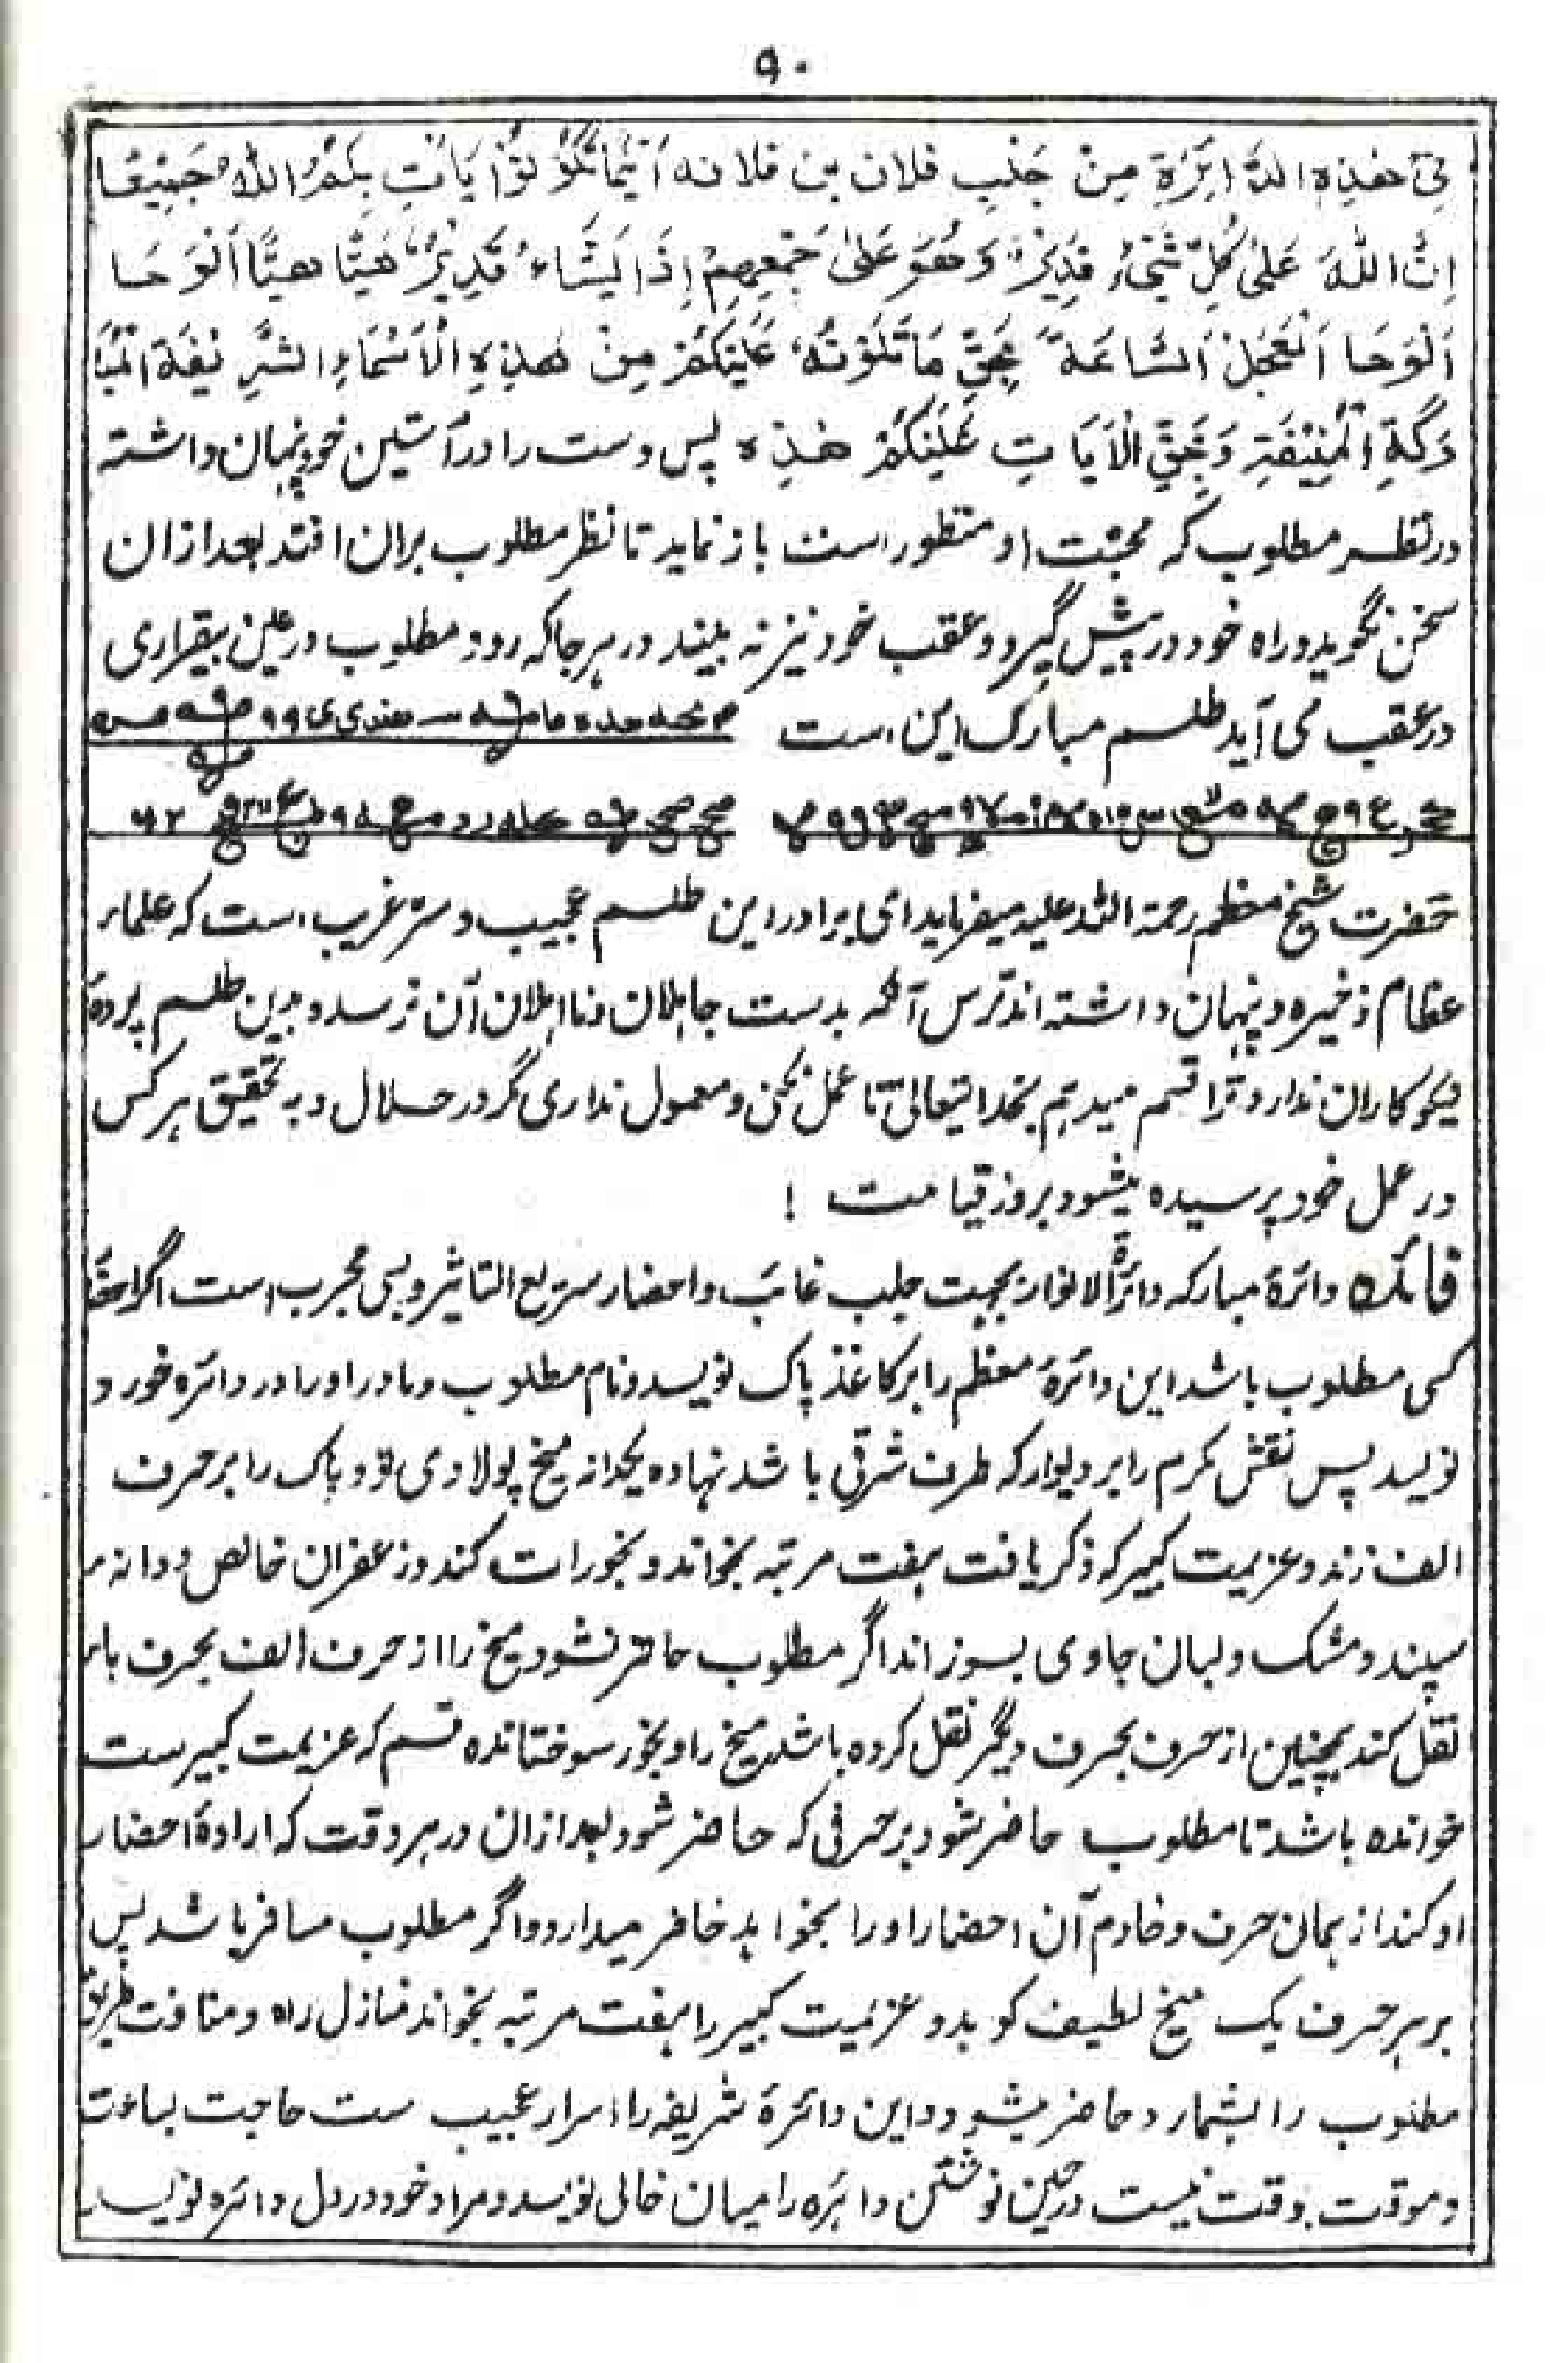 ۹۰
فِیْ هٰذِهِ الدَّائِرَةِ مِنْ جَلْبِ فلان بن فلانه اَیْنَمَا تَکُوْنُوْا یَاْتِ بِکُمُ اللهُ جَمِیْعًا
اِنَّ اللهَ عَلٰی کُلِّ شَیْءٍ قَدِیْرٌ وَهُوَ عَلٰی جَمْعِهِمْ اِذَا یَشَاءُ قَدِیْرٌ هَیَّا هیَّا اَلْوَحَا
اَلْوَحَا اَلْعَجَلْ اَلسَّاعَةَ بِحَقِّ مَا تَلَوْتُهُ عَلَیْکُمْ مِنْ هٰذِهِ الْاَسْمَاءِ الشَّرِیْفَةِ الْمُبَا
رَکَةِ الْمُنِیْفَةِ وَبِحَقِّ الْاٰیَاتِ عَلَیْکُمْ هٰذِه پس دست را در آستین خود پنهان داشته
در نظر مطلوب که محبّت او منظور است باز نماید تا نظر مطلوب بران افتد بعد ازان
سخن نگوید و راه خود در پیش گیرد و عقب خود نیز نه بیند در هر جا که رود مطلوب در عین بیقراری
در عقب می آید طلسم مبارک این است
حضرت شیخ معظم رحمة الله علیه میفرماید ای برادر این طلسم عجیب و سرّ غریب است که علماء
عظام ذخیره و پنهان داشته اند ترس آنکه بدست جاهلان و نااهلان آن نرسد و برین طلسم پردهٔ
نیکو کاران ندارد و ترا قسم میدهم بخدا یتعالیٰ تا عمل نکنی و معمول نداری مگر در حلال و به تحقیق هر کس
در عمل خود پرسیده میشود بروز قیامت !
فائده دائرهٔ مبارکه دائرةُ الانوار بجهت جلب غائب و احضار سریع التاثیر و بسی مجرب است اگر احضار
کسی مطلوب باشد این دائرهٔ معظم را بر کاغذ پاک نویسد و نام مطلوب و مادر او را در دائره خورد
نویسد پس نقش مکرم را بر دیوار که طرف شرقی باشد نهاده یکدانه میخ پولادی نو و پاک را بر حرف
الف زند و عزیمت کبیر که ذکر یافت هفت مرتبه بخواند و بخورات کند و زعفران خالص و دانه
سپند و مشک و لبان جاوی بسوزاند اگر مطلوب حاضر نشود میخ را از حرف الف بحرف باء
نقل کند همچنین از حرف بحرف دیگر نقل کرده باشد میخ را و بخور سوختانده قسم که عزیمت کبیر ست
خوانده باشد تا مطلوب حاضر شود بر حرفی که حاضر شود بعد ازان در هر وقت که ارادهٔ احضار
او کند از همان حرف و خادم آن احضار او را بخواهد حاضر میدارد و اگر مطلوب مسافر باشد پس
بر هر حرف یک میخ لطیف کوبد و عزیمت کبیر را هفت مرتبه بخواند منازل راه و مسافت طریق
مطلوب را بشمارد حاضر میشود و این دائرهٔ شریفه را اسرار عجیب ست حاجت بساعت
و موقوت بوقت نیست در حین نوشتن دائره را میان خالی نویسد و مراد خود در دل دائره نویسد